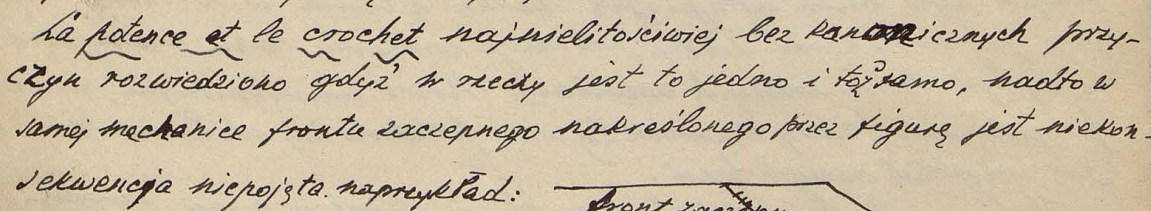 La potence et le crochet najnielitościwiej bez kanonicznych przy-
czyn rozwiedziono gdyż w rzeczy jest to jedno i tóż samo, nadto w
samej mechanice frontu zaczepnego nakreślonego przez figurę jest niekon-
sekwencja niepojęta. naprzykład:
front